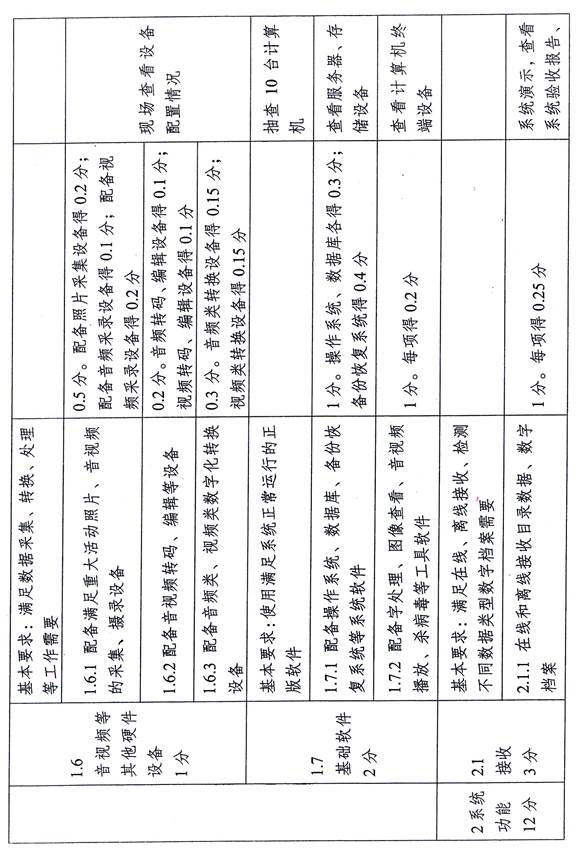 基本要求：满足数据采集、转换、处理
等工作需要
1.6
音视频等
其他硬件
设备
1 分
1.6.1 配备满足重大活动照片、音视频
的采集、摄录设备
0.5 分。配备照片采集设备得 0.2 分；
配备音频采录设备得 0.1 分；配备视
频采录设备得 0.2 分
现场查看设备
配置情况
1.6.2 配备音视频转码、编辑等设备
0.2 分。音频转码、编辑设备得 0.1 分；
视频转码、编辑设备得 0.1 分
1.6.3 配备音频类、视频类数字化转换
设备
0.3 分。音频类转换设备得 0.15 分；
视频类转换设备得 0.15 分
1.7
基础软件
2 分
基本要求：使用满足系统正常运行的正
版软件
抽查 10 台计算
机
1.7.1 配备操作系统、数据库、备份恢
复系统等系统软件
1 分。操作系统、数据库各得 0.3 分；
备份恢复系统得 0.4 分
查看服务器、存
储设备
1.7.2 配备字处理、图像查看、音视频
播放、杀病毒等工具软件
1 分。每项得 0.2 分
查看计算机终
端设备
2 系统
功能
12 分
2.1
接收
3 分
基本要求：满足在线、离线接收、检测
不同数据类型数字档案需要
2.1.1 在线和离线接收目录数据、数字
档案
1 分。每项得 0.25 分
系统演示，查看
系统验收报告、